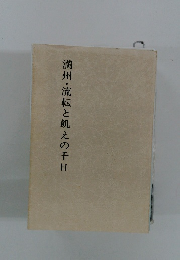 満州・流転と飢えの千日